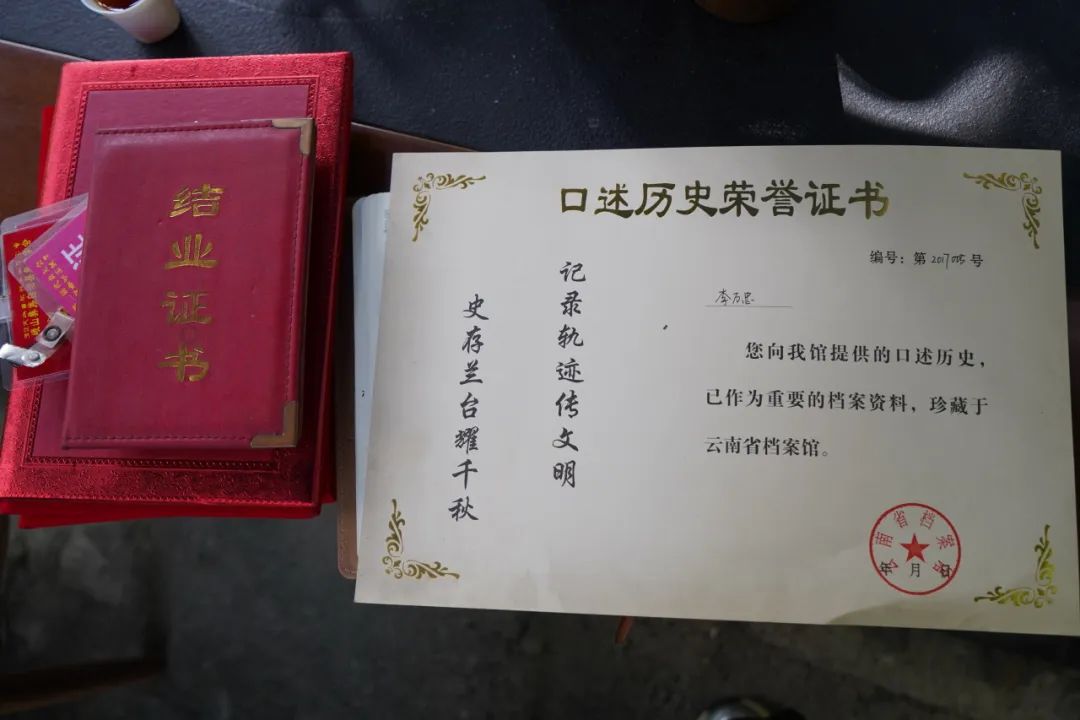 结业证书
口述历史荣誉证书
编号：第2017015号
李万忠
您向我馆提供的口述历史，
已作为重要的档案资料，珍藏于
云南省档案馆。
记录轨迹传文明
史存兰台耀千秋
云南省档案馆
年 月 日